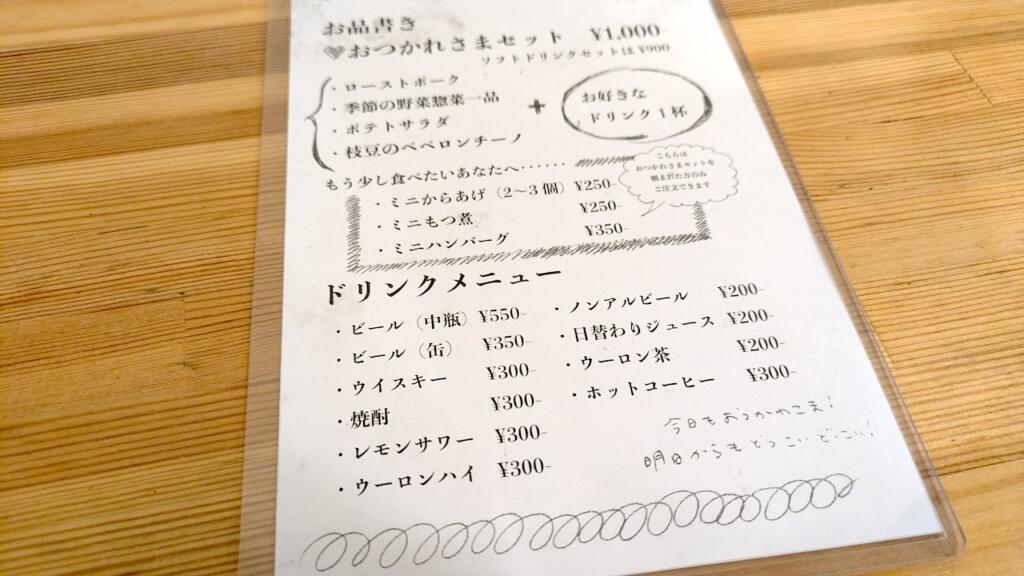 お品書き
♥おつかれさまセット ¥1,000-
ソフトドリンクセットは¥900
・ローストポーク
・季節の野菜惣菜一品
・ポテトサラダ
・枝豆のペペロンチーノ
+
お好きな
ドリンク1杯
もう少し食べたいあなたへ……
こちらは
おつかれさまセットを
頼まれた方のみ
ご注文できます
・ミニからあげ（2〜3個）¥250-
・ミニもつ煮 ¥250-
・ミニハンバーグ ¥350-
ドリンクメニュー
・ビール（中瓶）¥550-
・ビール（缶） ¥350-
・ウイスキー ¥300-
・焼酎 ¥300-
・レモンサワー ¥300-
・ウーロンハイ ¥300-
・ノンアルビール ¥200-
・日替わりジュース ¥200-
・ウーロン茶 ¥200-
・ホットコーヒー ¥300-
今日もおつかれさま!
明日からもどっこいどっこい!